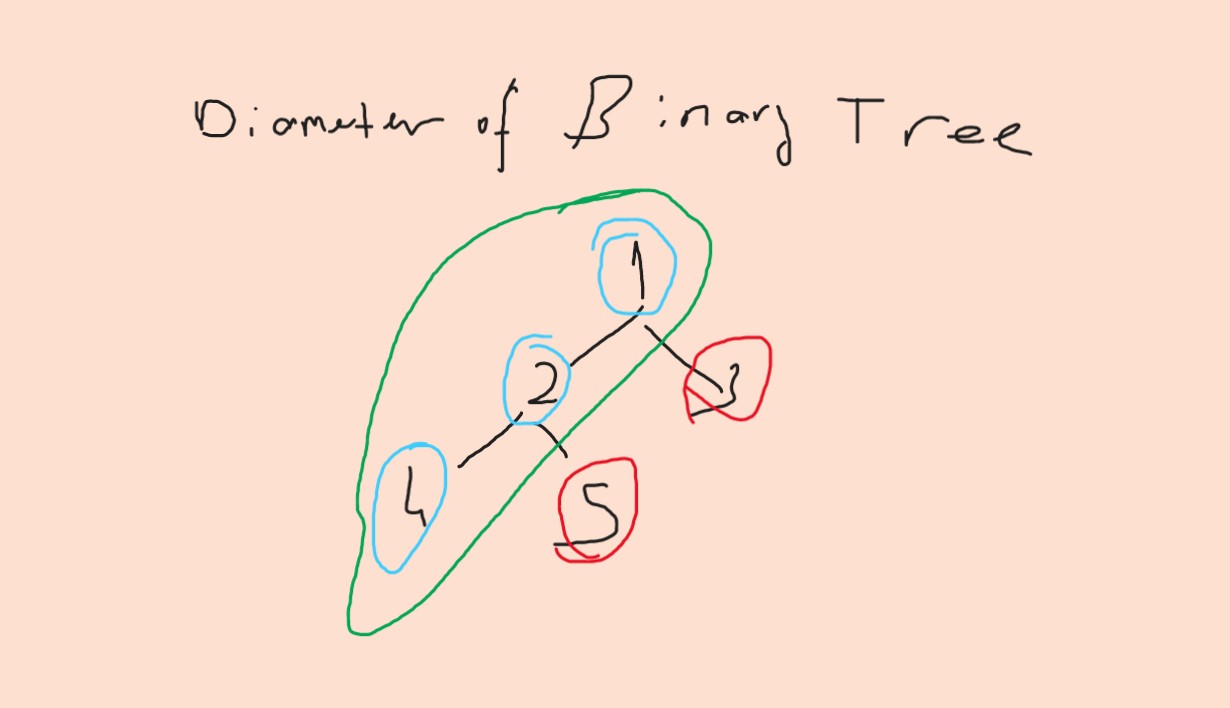 Diameter of Binary Tree
1
2 3
4 5